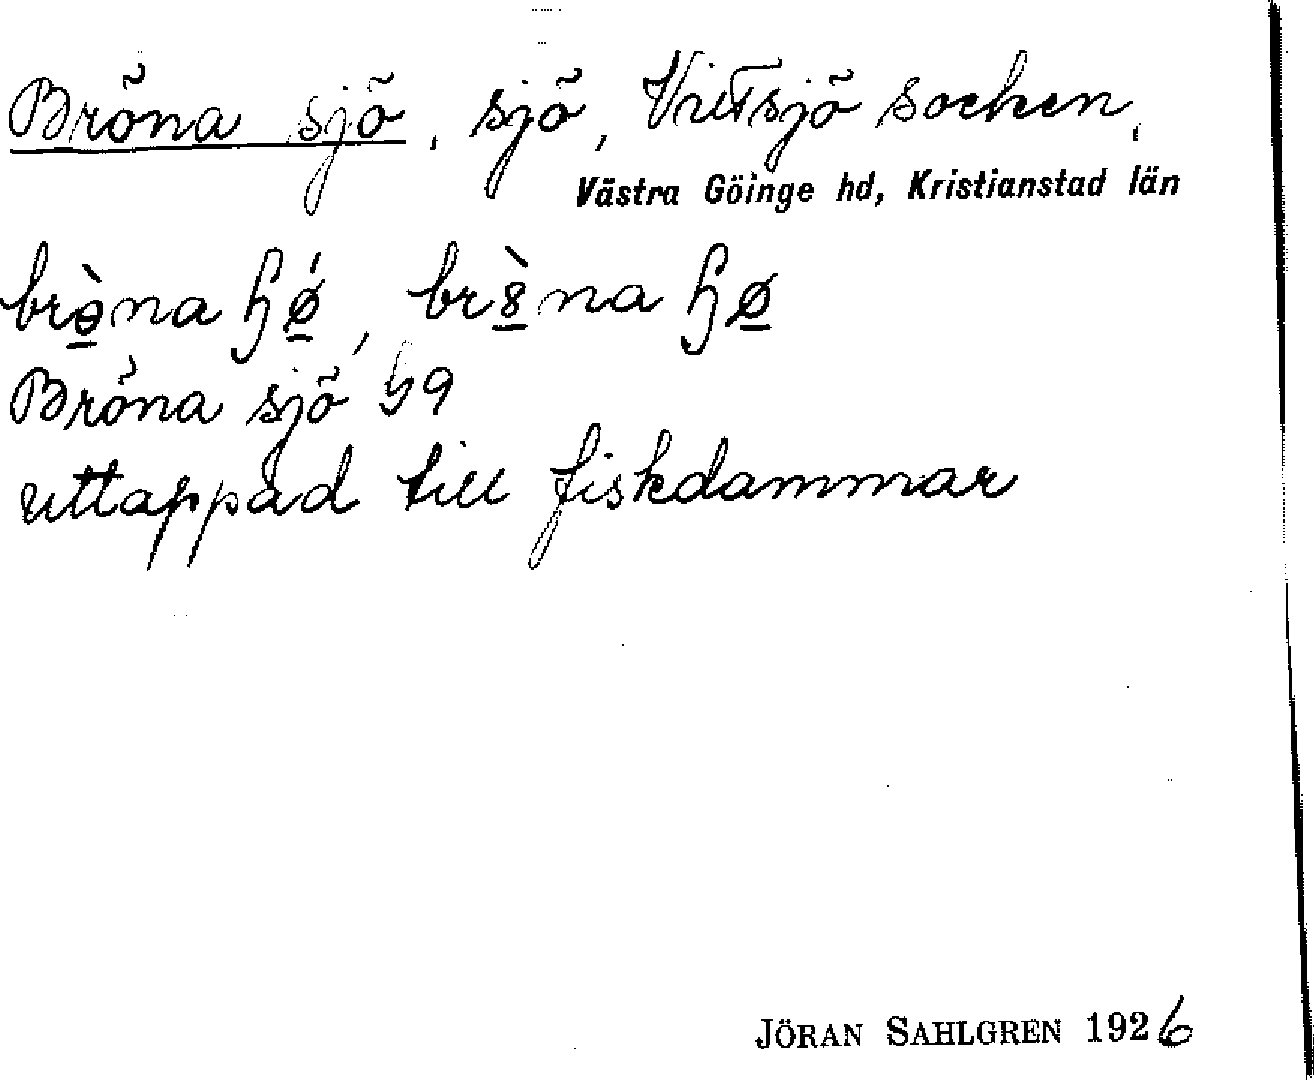 Bröna sjö, sjö, Vittsjö socken,
Västra Göinge hd, Kristianstad län
brə̀na ɧǿ, br8̀na ɧø
Bröna sjö
uttappad till fiskdammar
JÖRAN SAHLGREN 1926